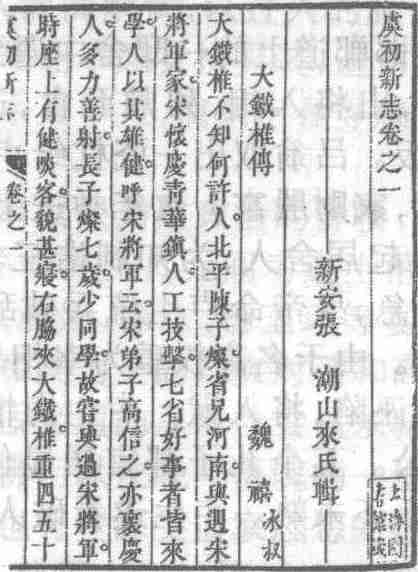 虞初新志卷之一
新安張 潮山來氏輯
大鐵椎傳 魏 禧 冰叔
大鐵椎不知何許人北平陳子燦省兄河南與遇宋
將軍家宋懷慶青華鎮人工技擊七省好事者皆來
學人以其雄健呼宋將軍云宋弟子高信之亦懷慶
人多力善射長子燦七歲少同學故嘗與過宋將軍
時座上有健啖客貌甚寢右脇夾大鐵椎重四五十
虞初新志 卷之一
上海圖書館藏